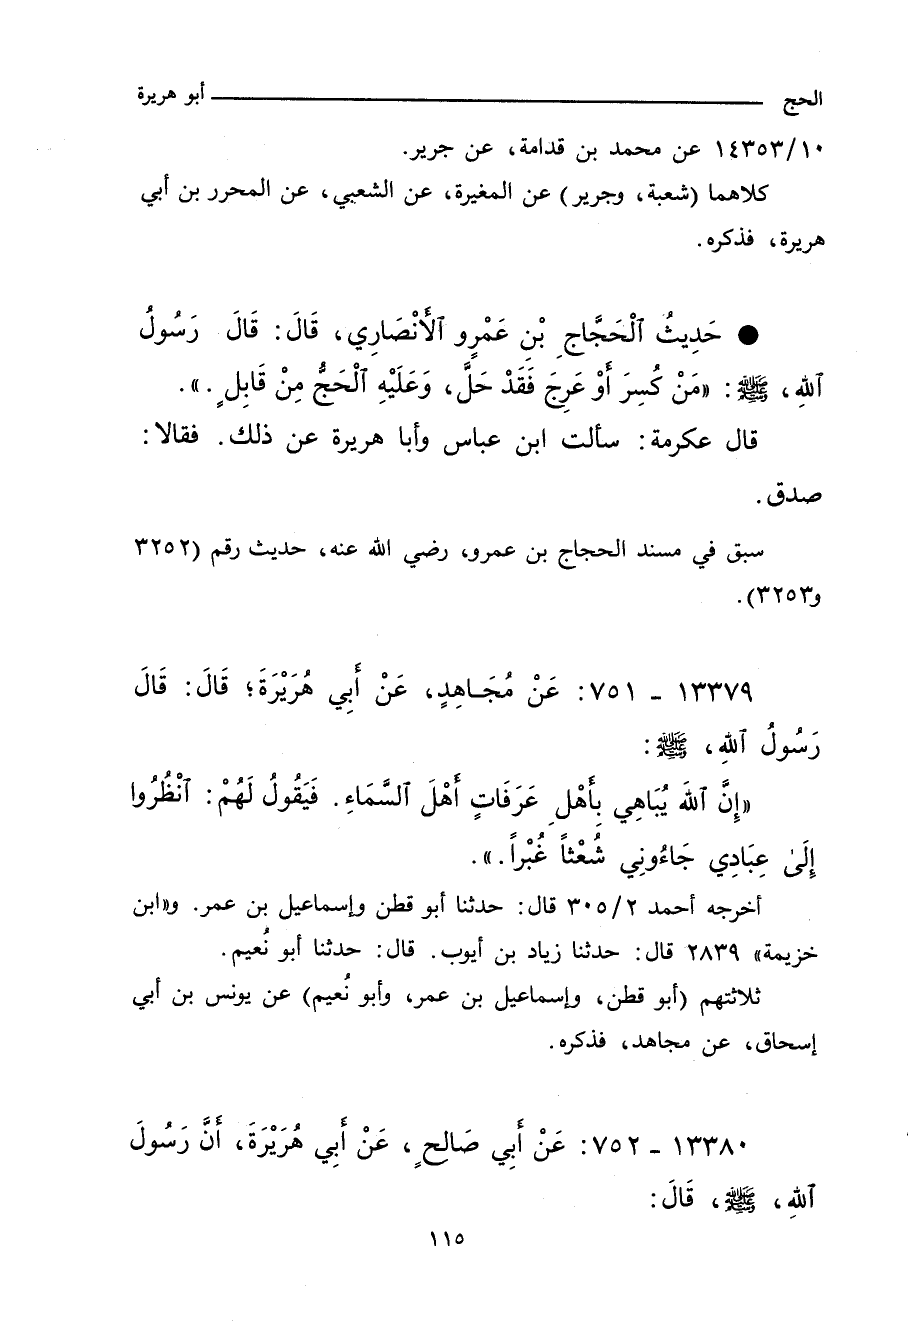 الحج ــــــــــ أبو هريرة
١٤٣٥٣/١٠ عن محمد بن قدامة، عن جرير.
كلاهما (شعبة، وجرير) عن المغيرة، عن الشعبي، عن المحرر بن أبي
هريرة، فذكره.
● حَدِيثُ ٱلْحَجَّاجِ بْنِ عَمْرٍو ٱلأَنْصَارِي، قَالَ: قَالَ رَسُولُ
ٱللهِ، ﷺ: «مَنْ كُسِرَ أَوْ عَرِجَ فَقَدْ حَلَّ، وَعَلَيْهِ ٱلْحَجُّ مِنْ قَابِلٍ.».
قال عكرمة: سألت ابن عباس وأبا هريرة عن ذلك. فقالا:
صدق.
سبق في مسند الحجاج بن عمرو، رضي الله عنه، حديث رقم (٣٢٥٢
و٣٢٥٣).
١٣٣٧٩ - ٧٥١: عَنْ مُجَاهِدٍ، عَنْ أَبِي هُرَيْرَةَ؛ قَالَ: قَالَ
رَسُولُ ٱللهِ، ﷺ:
«إِنَّ ٱللهَ يُبَاهِي بِأَهْلِ عَرَفَاتٍ أَهْلَ ٱلسَّمَاءِ. فَيَقُولُ لَهُمْ: ٱنْظُرُوا
إِلَىٰ عِبَادِي جَاءُونِي شُعْثاً غُبْراً.».
أخرجه أحمد ٣٠٥/٢ قال: حدثنا أبو قطن وإسماعيل بن عمر. و«ابن
خزيمة» ٢٨٣٩ قال: حدثنا زياد بن أيوب. قال: حدثنا أبو نُعيم.
ثلاثتهم (أبو قطن، وإسماعيل بن عمر، وأبو نُعيم) عن يونس بن أبي
إسحاق، عن مجاهد، فذكره.
١٣٣٨٠ - ٧٥٢: عَنْ أَبِي صَالِحٍ، عَنْ أَبِي هُرَيْرَةَ، أَنَّ رَسُولَ
ٱللهِ، ﷺ، قَالَ:
١١٥